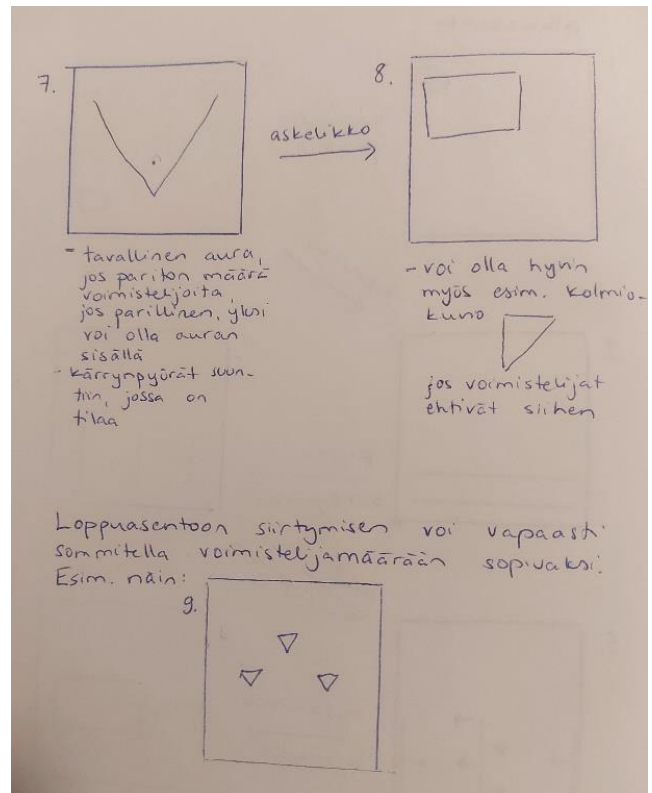 7.
askelikko
8.
- tavallinen aura,
jos pariton määrä
voimistelijoita,
jos parillinen, yksi
voi olla auran
sisällä
- kärrynpyörät suun-
tiin, jossa on
tilaa
- voi olla hyvin
myös esim. kolmio-
kuvio
jos voimistelijat
ehtivät siihen
Loppuasentoon siirtymisen voi vapaasti
sommitella voimistelijamäärään sopivaksi.
Esim. näin:
9.